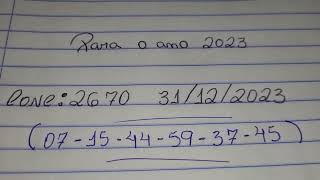 Para o ano 2023
Conc: 2670 31/12/2023
(07-15-44-59-37-45)